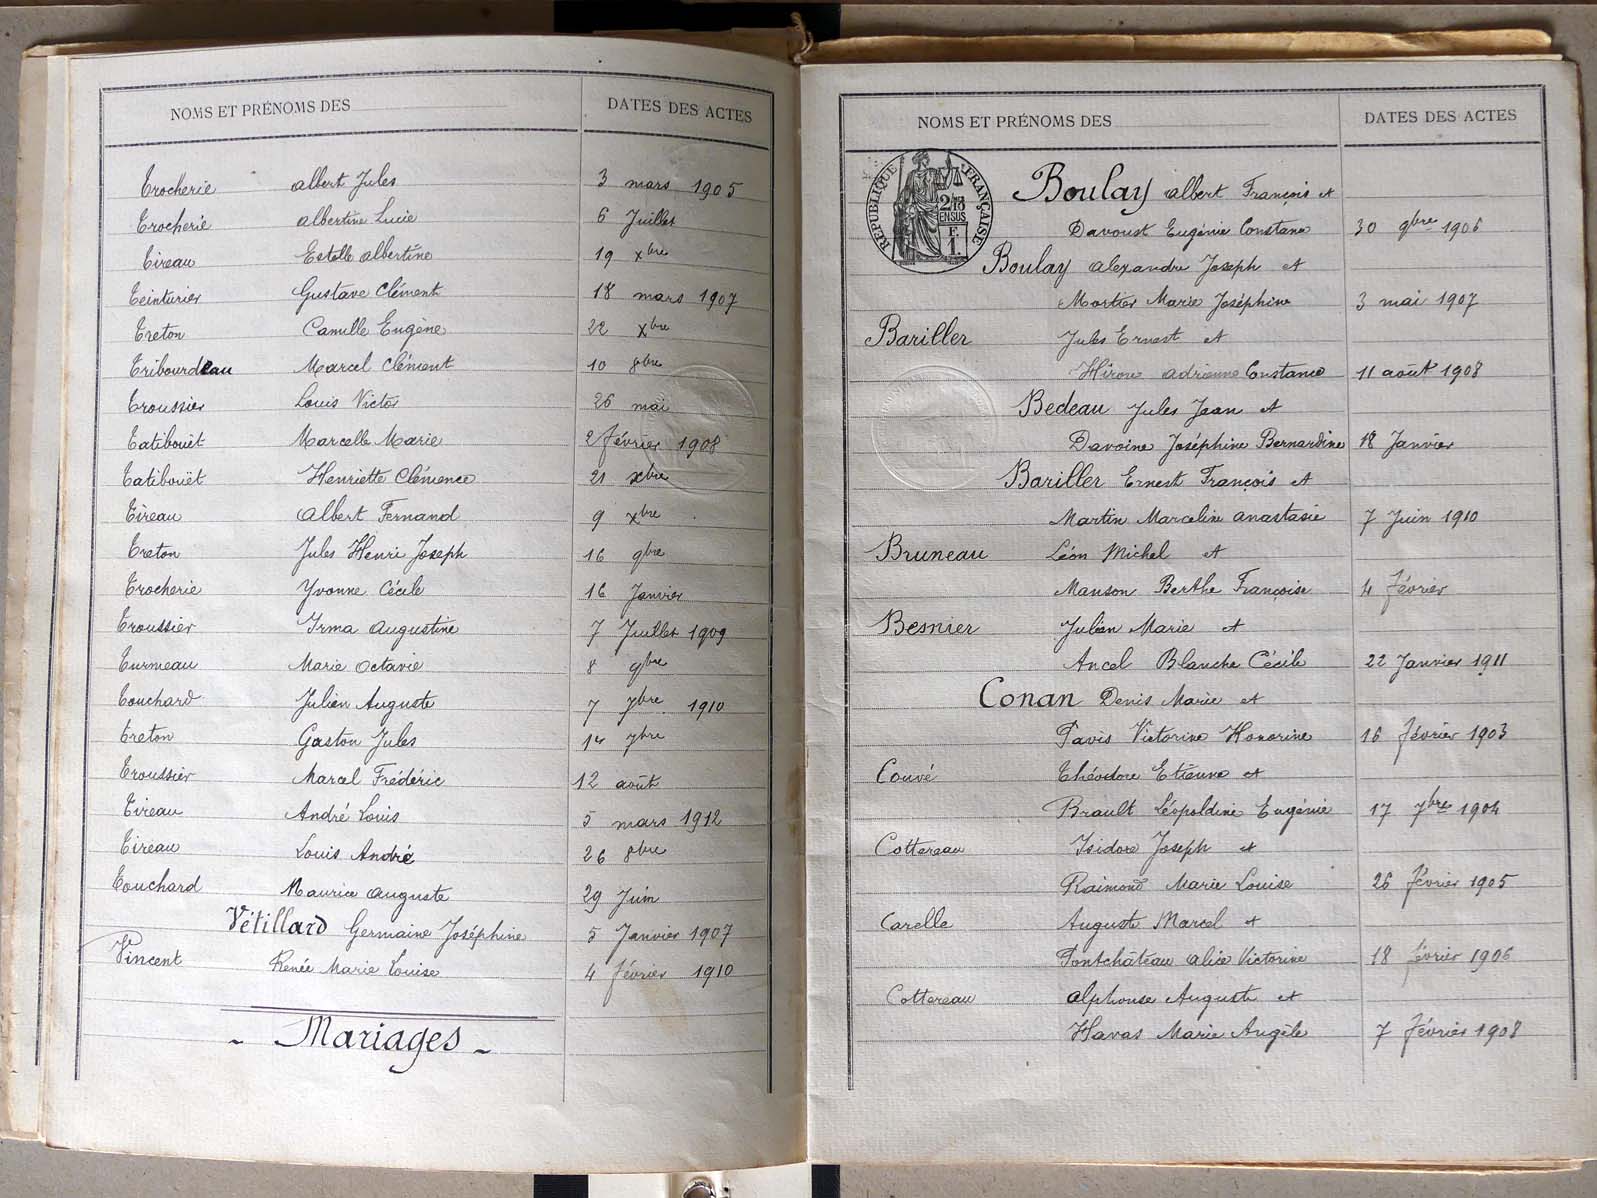 NOMS ET PRÉNOMS DES
DATES DES ACTES
Trocherie Albert Jules 3 mars 1905
Trocherie Albertine Lucie 6 Juillet
Tireau Estelle Albertine 19 xbre
Teinturier Gustave Clément 18 mars 1907
Treton Camille Eugène 22 xbre
Tribourdeau Marcel Clément 10 8bre
Troussier Louis Victor 26 mai
Tatibouët Marcelle Marie 2 février 1908
Tatibouët Henriette Clémence 21 xbre
Tireau Albert Fernand 9 xbre
Treton Jules Henri Joseph 16 9bre
Trocherie Yvonne Cécile 16 Janvier
Troussier Irma Augustine 7 Juillet 1909
Turmeau Marie Octavie 8 9bre
Touchard Julien Auguste 7 7bre 1910
Treton Gaston Jules 1er 7bre
Troussier Marcel Frédéric 12 août
Tireau André Louis 5 mars 1912
Tireau Louis André 26 8bre
Touchard Maurice Auguste 29 Juin
Vétillard Germaine Joséphine 5 Janvier 1907
Vincent Renée Marie Louise 4 février 1910
- Mariages -
NOMS ET PRÉNOMS DES
DATES DES ACTES
RÉPUBLIQUE FRANÇAISE
2/13
EN SUS
F.
1.
Boulay Albert François et
Davoust Eugénie Constane 30 9bre 1906
Boulay Alexandre Joseph et
Mortier Marie Joséphine 3 mai 1907
Bariller Jules Ernest et
Hirou Adrienne Constance 11 août 1908
Bedeau Jules Jean et
Davoine Joséphine Bernardine 18 Janvier
Bariller Ernest François et
Martin Marceline Anastasie 7 Juin 1910
Bruneau Léon Michel et
Manson Berthe Françoise 4 février
Besnier Julien Marie et
Ancel Blanche Cécile 22 Janvier 1911
Conan Denis Marie et
Pavis Victorine Honorine 16 février 1903
Couvé Théodore Etienne et
Brault Léopoldine Eugénie 17 7bre 1904
Cottereau Isidore Joseph et
Raimond Marie Louise 26 février 1905
Carelle Auguste Marcel et
Pontchateau Alice Victorine 18 février 1906
Cottereau Alphonse Auguste et
Havas Marie Angèle 7 février 1908